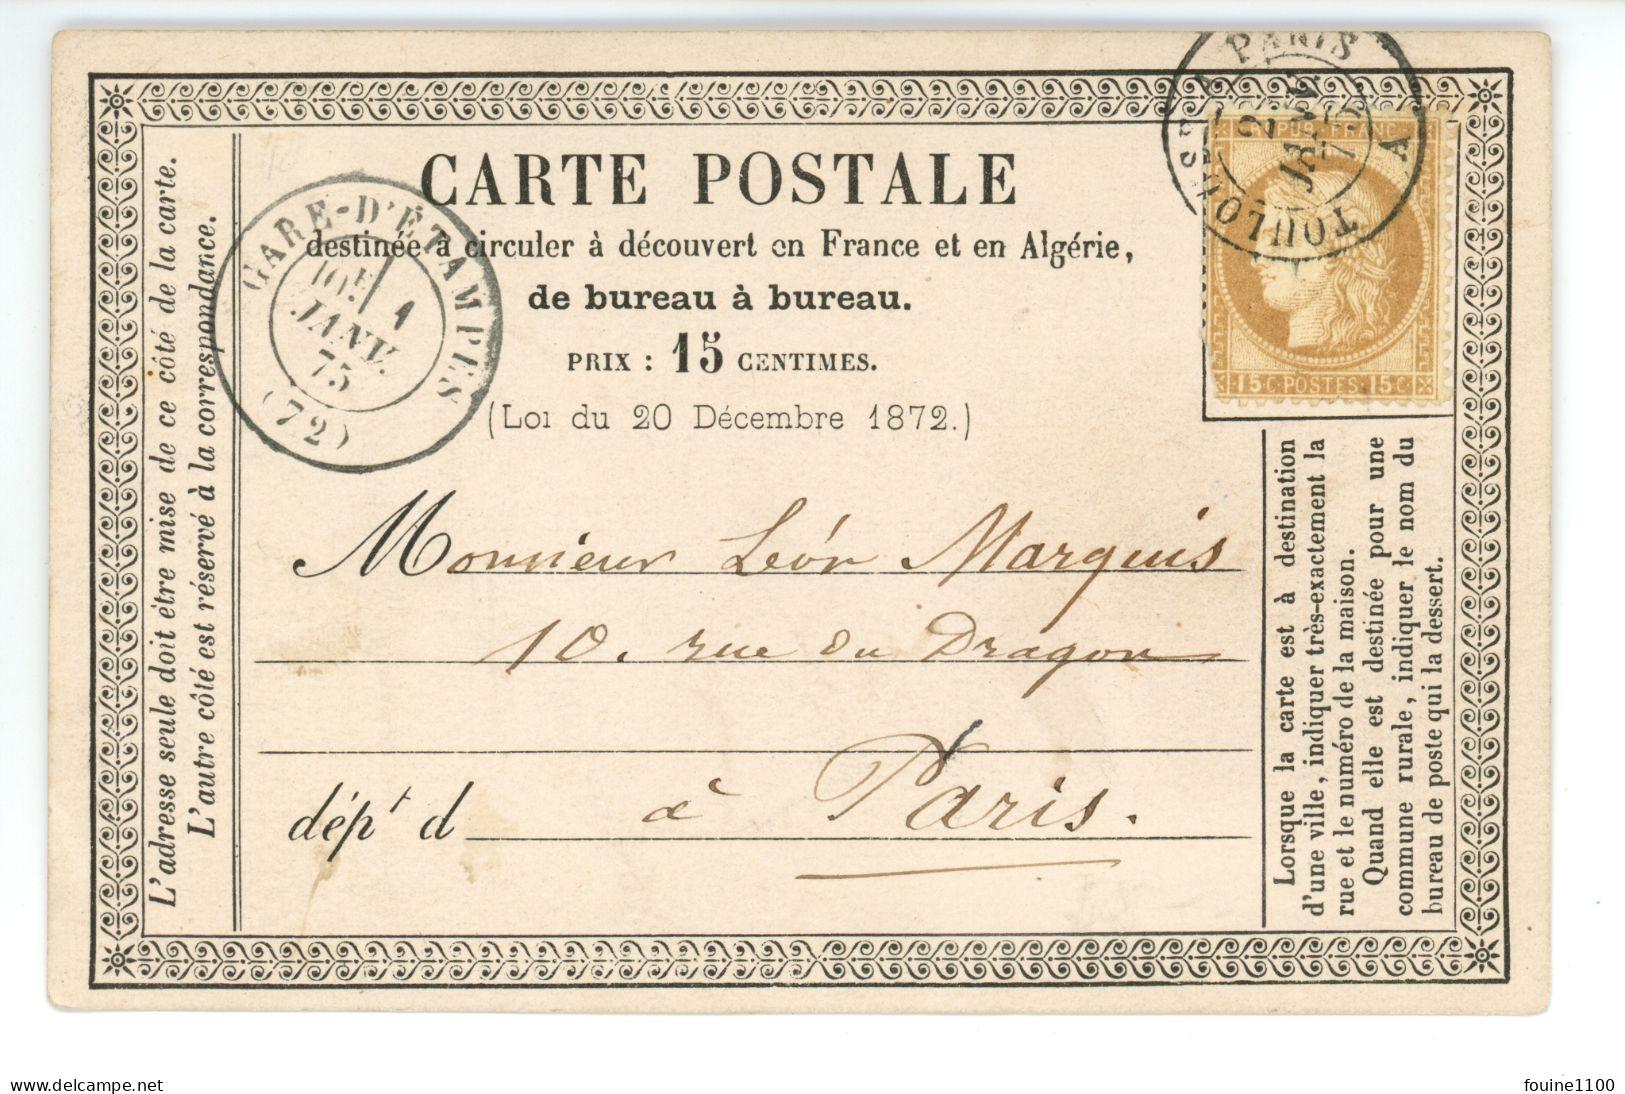 CARTE POSTALE
destinée à circuler à découvert en France et en Algérie,
de bureau à bureau.
PRIX : 15 CENTIMES.
(Loi du 20 Décembre 1872.)
Monsieur Léon Marquis
10. rue du Dragon
dépt d à Paris.
L'adresse seule doit être mise de ce côté de la carte.
L'autre côté est réservé à la correspondance.
GARE-D'ÉTAMPES
1
JANV.
75
(72)
TOULOUSE A PARIS
2
JANV
75
A
REPUB. FRANC.
15 C POSTES 15 C
Lorsque la carte est à destination
d'une ville, indiquer très-exactement la
rue et le numéro de la maison.
Quand elle est destinée pour une
commune rurale, indiquer le nom du
bureau de poste qui la dessert.
© delcampe.net
fouine1100